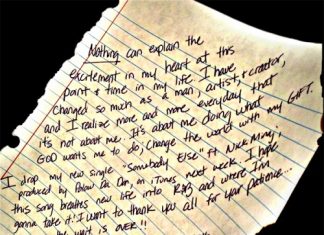 Nothing can explain the
excitement in my heart at this
point & time in my life I have
changed so much as a man, artist, & creator,
and I realize more and more everyday that
it's not about me. It's about me doing what my
GOD wants me to do; Change the world with my GIFT.
I drop my new single "Somebody Else" ft Nicki Minaj,
produced by Polow Da Don, on iTunes next week. I hope
this song breathes new life into R&B and where I'm
gonna take it! I want to thank you all for your patience...
the wait is OVER!!